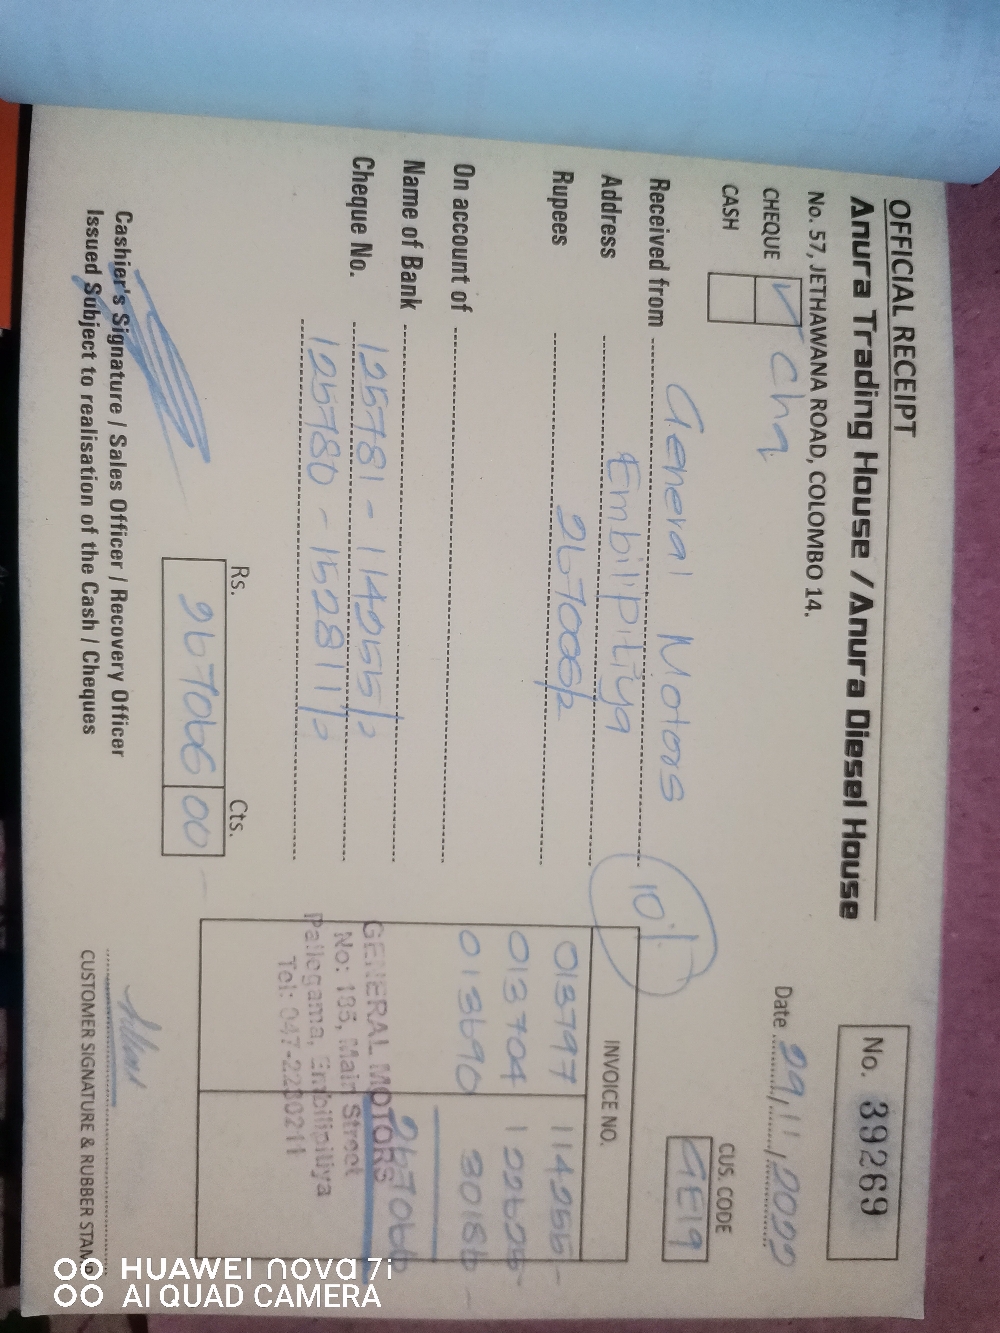 OFFICIAL RECEIPT
Anura Trading House / Anura Diesel House
No. 57, JETHAWANA ROAD, COLOMBO 14.
No. 39269
CHEQUE √ chq
CASH
Date 29/11/2022
CUS. CODE
GE19
Received from General Motors
Address Embilipitiya
Rupees 267066/=
On account of
Name of Bank
Cheque No. 125781 - 114255/=
125780 - 152811/=
10%
INVOICE NO.
013797 114255-
013704 122625-
013690 30186-
267066
GENERAL MOTORS
No: 185, Main Street
Pallegama, Embilipitiya
Tel: 047-2230211
Rs. Cts.
267066 00
Cashier's Signature / Sales Officer / Recovery Officer
Issued Subject to realisation of the Cash / Cheques
CUSTOMER SIGNATURE & RUBBER STAMP
HUAWEI nova 7i
AI QUAD CAMERA